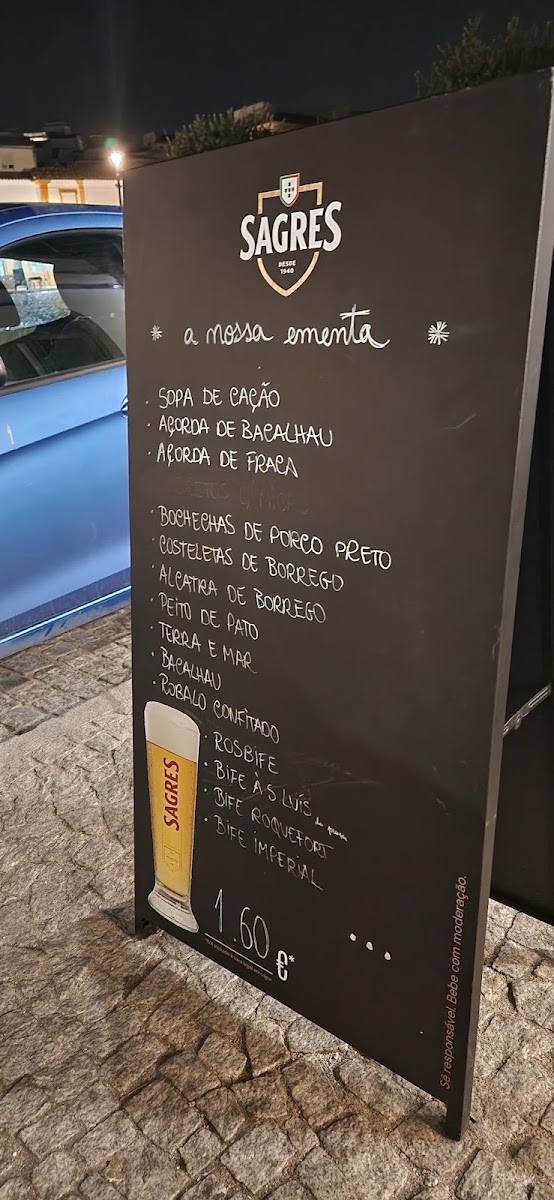 SAGRES
DESDE
1940
* a nossa ementa *
· SOPA DE CAÇÃO
· AÇORDA DE BACALHAU
· AÇORDA DE FRACA
· BOCHECHAS DE PORCO PRETO
· COSTELETAS DE BORREGO
· ALCATRA DE BORREGO
· PEITO DE PATO
· TERRA E MAR
· BACALHAU
· ROBALO CONFITADO
· ROSBIFE
· BIFE À S. LUÍS
· BIFE ROQUEFORT
· BIFE IMPERIAL
...
SAGRES
1.60 €*
Sê responsável. Bebe com moderação.